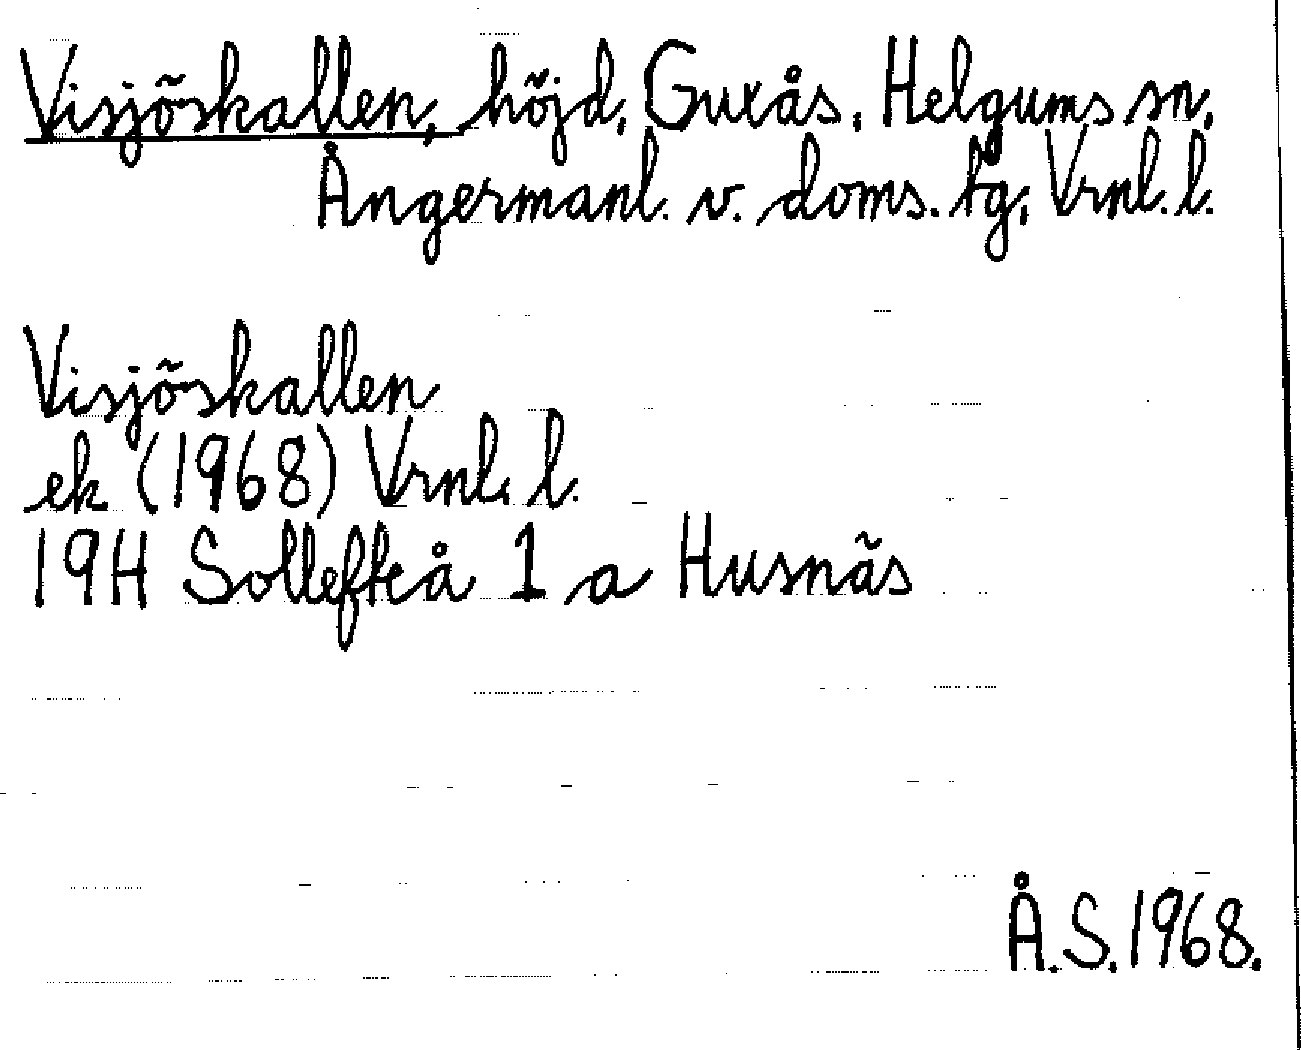 Visjöskallen, höjd, Guxås, Helgums sn,
Ångermanl. v. doms. tg, Vrnl. l.
Visjöskallen
ek (1968) Vrnl. l.
19H Sollefteå 1 a Husnäs
Å.S. 1968.